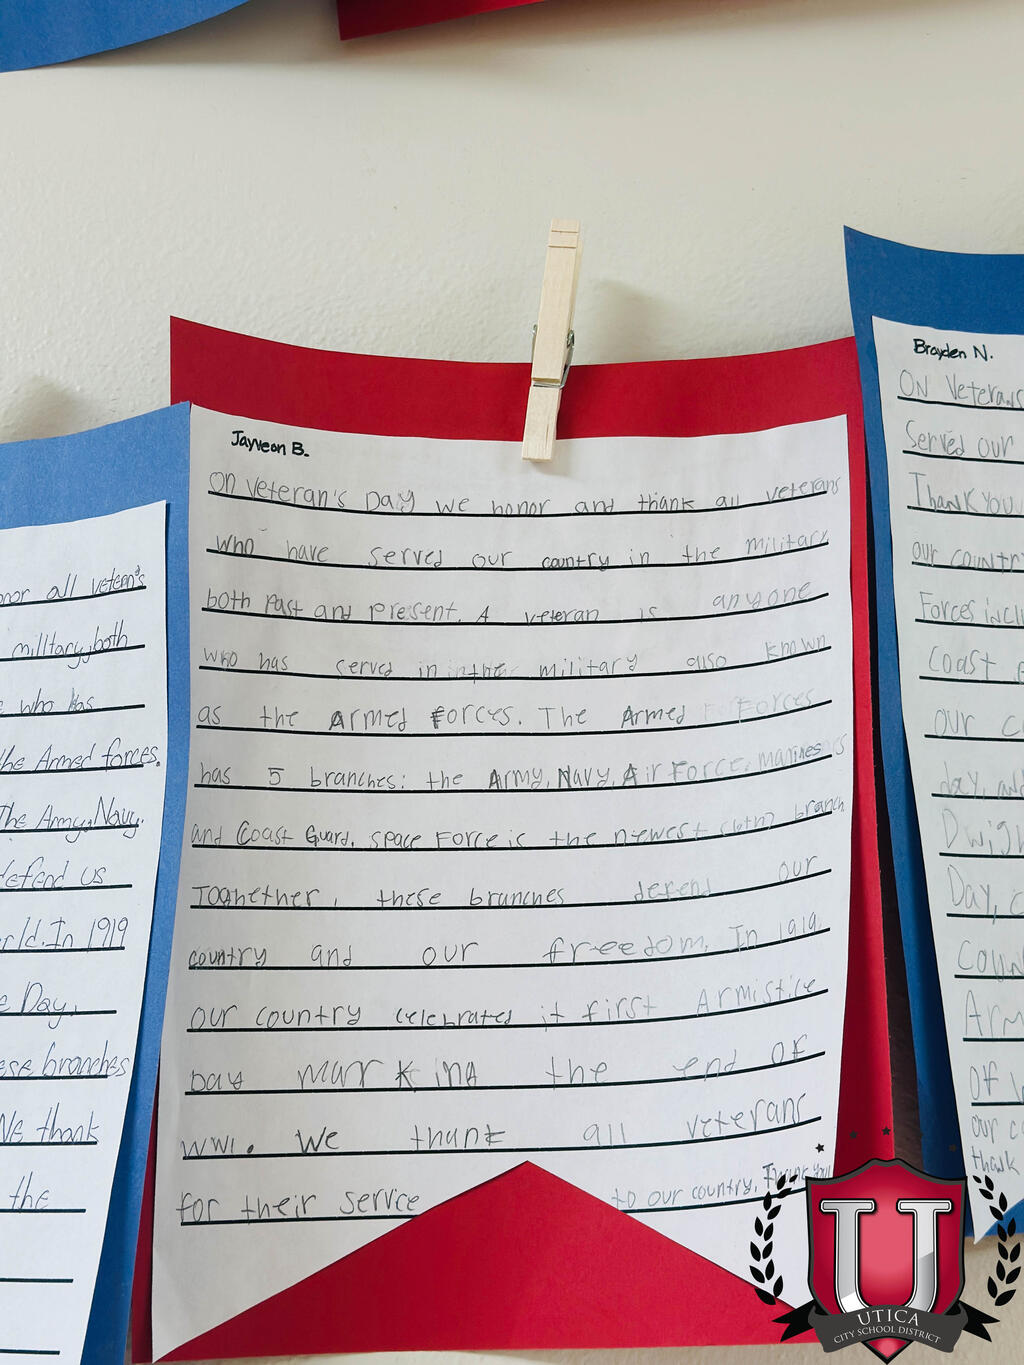 nor all veteran's
military, both
who has
the Armed forces.
The Army, Navy,
defend us
In 1919
Day,
these branches
We thank
the
Jayveon B.
On Veteran's Day we honor and thank all veterans
who have served our country in the military
both past and present. A veteran is anyone
who has served in the military also known
as the Armed Forces. The Armed Forces
has 5 branches: the Army, Navy, Air Force, marines
and Coast Guard. Space Force is the newest branch
Toghether, these branches defend our
country and our freedom. In 1919,
our country celebrated it first Armistice
Day marking the end of
WWI. We thank all veterans
for their service to our country. Thank you
Brayden N.
ON Veterans
Served our
Thank You
our countr
Forces incl
Coast
our c
day, and
Dwigh
Day,
Coun
Arm
Of
our co
thank
U
UTICA
CITY SCHOOL DISTRICT